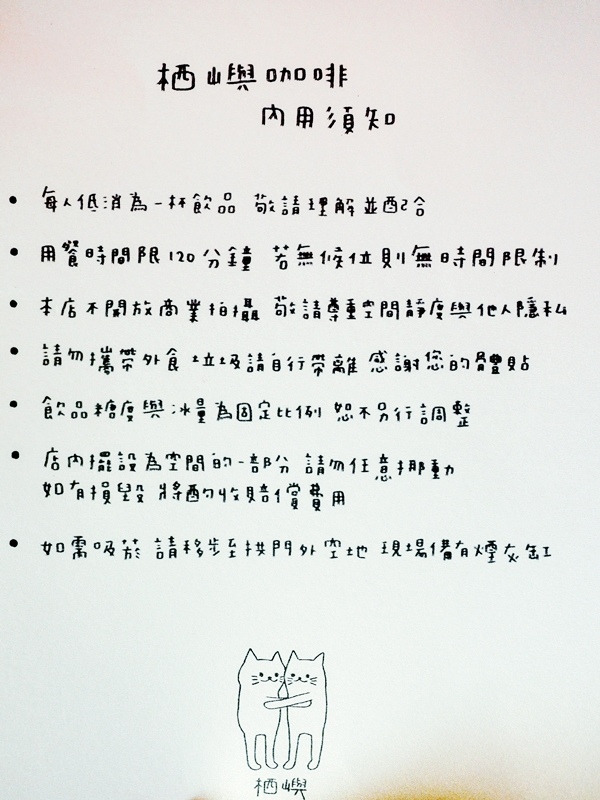 栖嶼咖啡
內用須知
• 每人低消為一杯飲品 敬請理解並配合
• 用餐時間限120分鐘 若無候位則無時間限制
• 本店不開放商業拍攝 敬請尊重空間靜度與他人隱私
• 請勿攜帶外食 垃圾請自行帶離 感謝您的體貼
• 飲品糖度與冰量為固定比例 恕不另行調整
• 店內擺設為空間的一部分 請勿任意挪動
如有損毀 將酌收賠償費用
• 如需吸菸 請移步至拱門外空地 現場備有煙灰缸
栖嶼